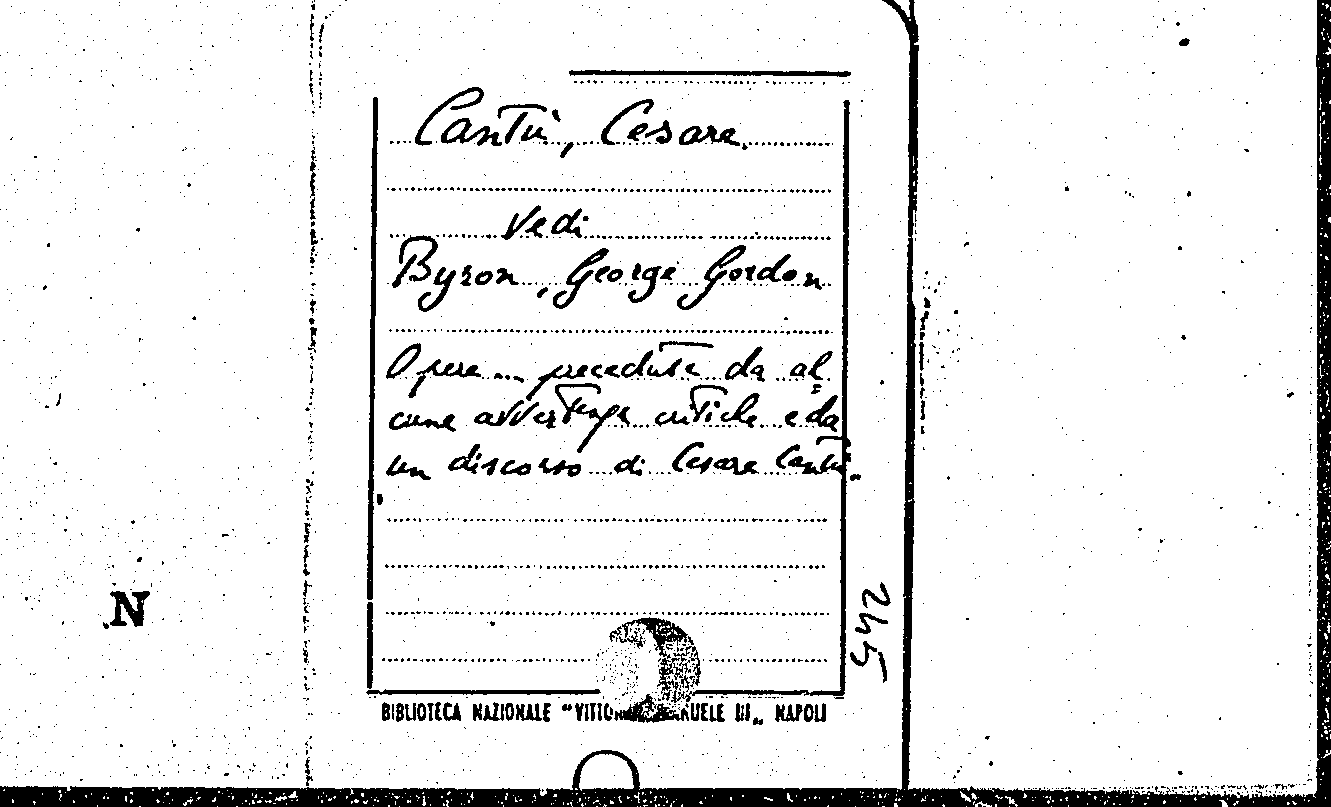 Cantù, Cesare.
Vedi
Byron, George Gordon
Opere ... precedute da al=
cune avvertenze critiche e da
un discorso di Cesare Cantù.
542
N
BIBLIOTECA NAZIONALE "VITTORIO EMANUELE III" NAPOLI